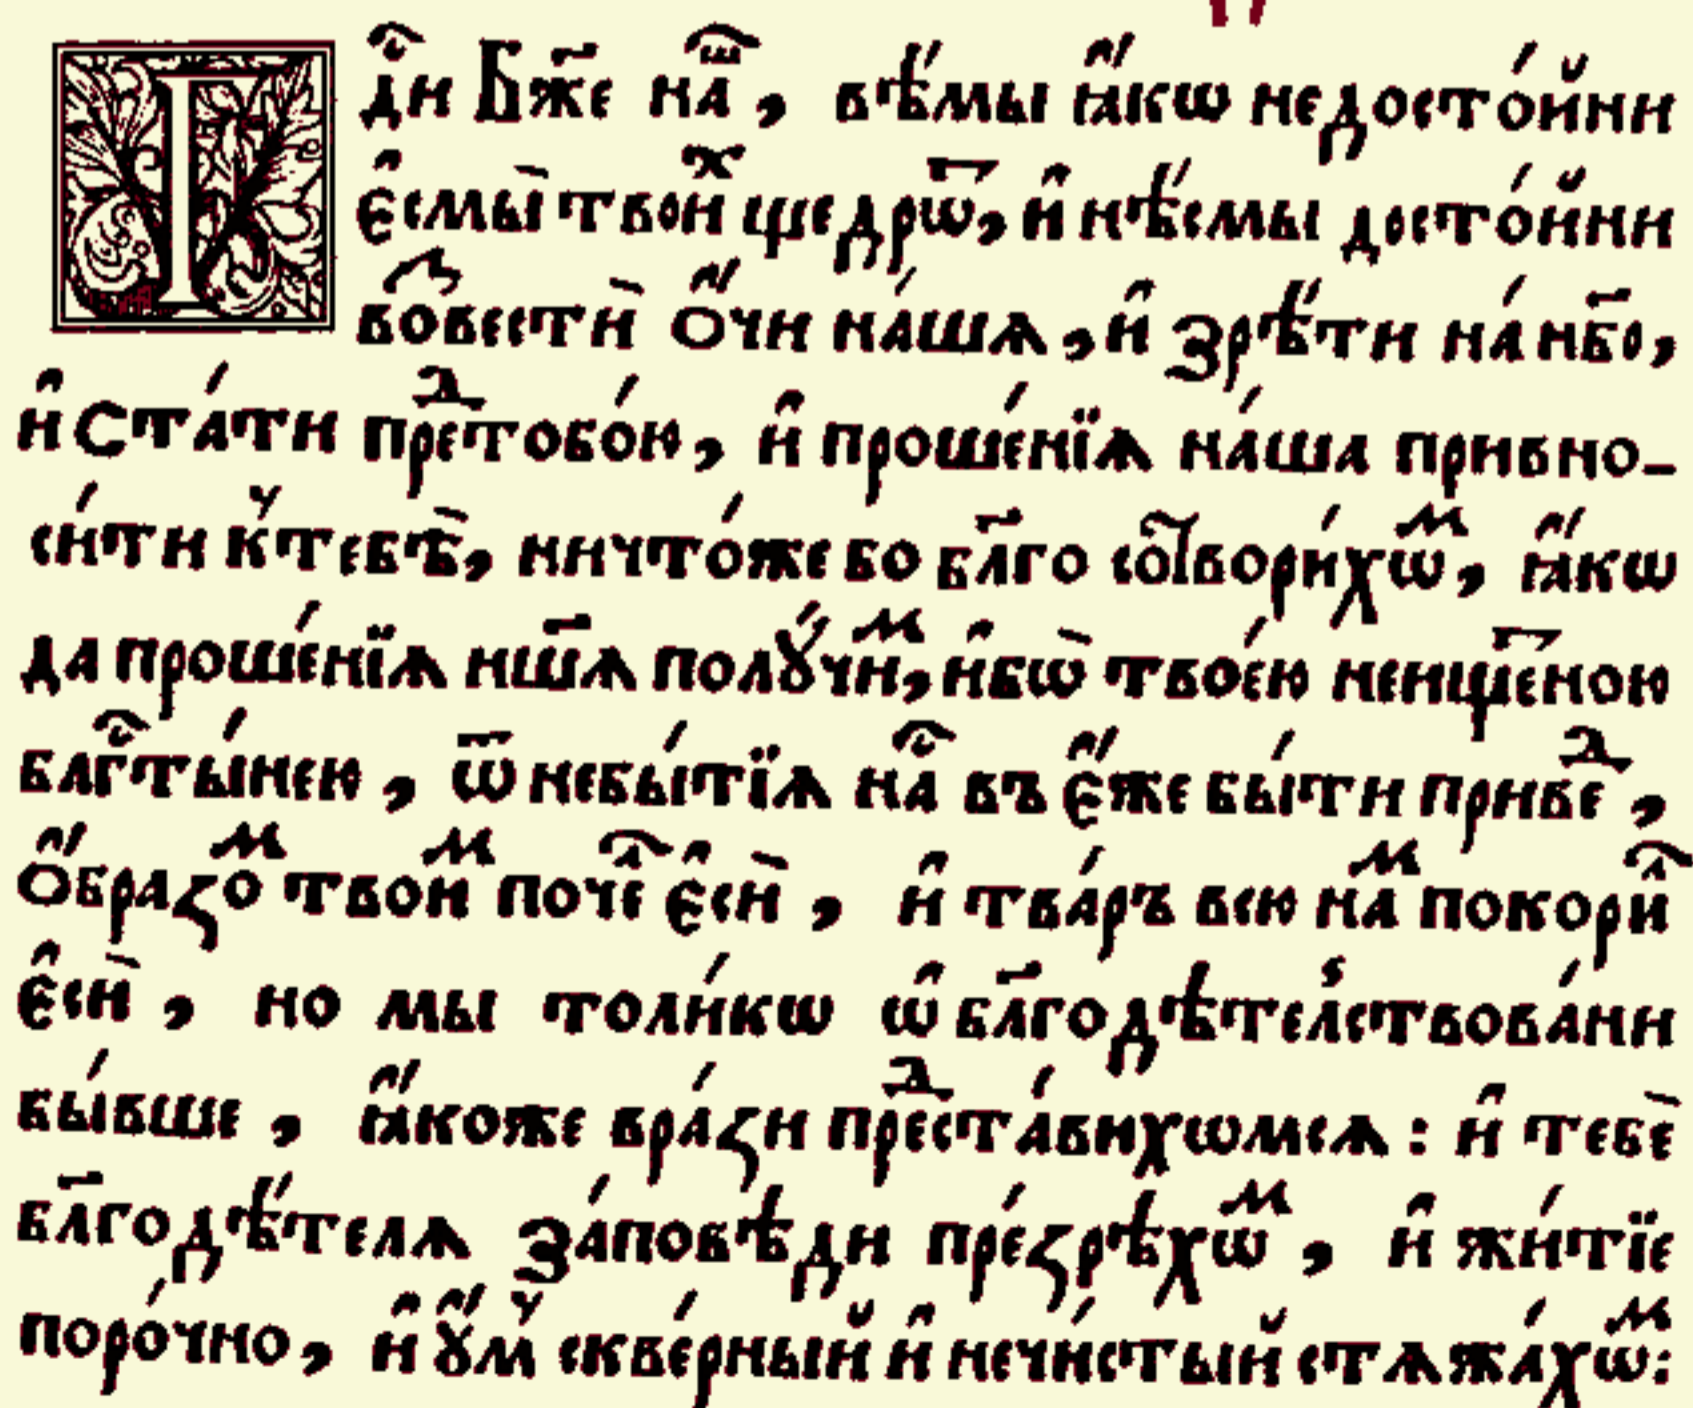 Гⷭ҇ди Бж҃е на́ш, вѣ́мы ꙗ҆́кѡ недосто́йни
є҆смы̀ твои́хъ щедрѡ́т, и҆ нѣ́смы досто́йни
во́звестѝ ѻ҆́чи на́шѧ, и҆ зрѣ́ти на́ нб҃о,
и҆ ста́ти пре́дтобо́ю, и҆ проше́нїѧ на́ша привно-
си́ти к̾тебѣ̀, ничто́же бо бл҃го сѻтвори́хѡⷨ, ꙗ҆́кѡ
да проше́нїѧ нш҃ѧ полꙋ́чиⷨ, и҆бѡ̀ твое́ю неищⷭ҇е́ною
благⷭ҇ты́нею, ѿ небы́тїѧ наⷭ҇ въ є҆́же бы́ти привеⷣ,
ѻ҆́бразоⷨ твоиⷨ почеⷧ҇ є҆сѝ, и҆ тва́ръ всю наⷨ покориⷧ҇
є҆сѝ, но мы толи́кѡ ѡ҆ бл҃годѣ́тел̾ствова́ни
бы́вше, ꙗ҆́коже вра́зи преⷣста́вихѡмсѧ: и҆ тебѐ
бл҃годѣ́телѧ за́повѣди пре́зрѣ́хѡⷨ, и҆ жи́тїе
поро́чно, и҆ ᲂу҆́м̾ скве́рный и҆ нечи́стый стѧжа́хѡⷨ: